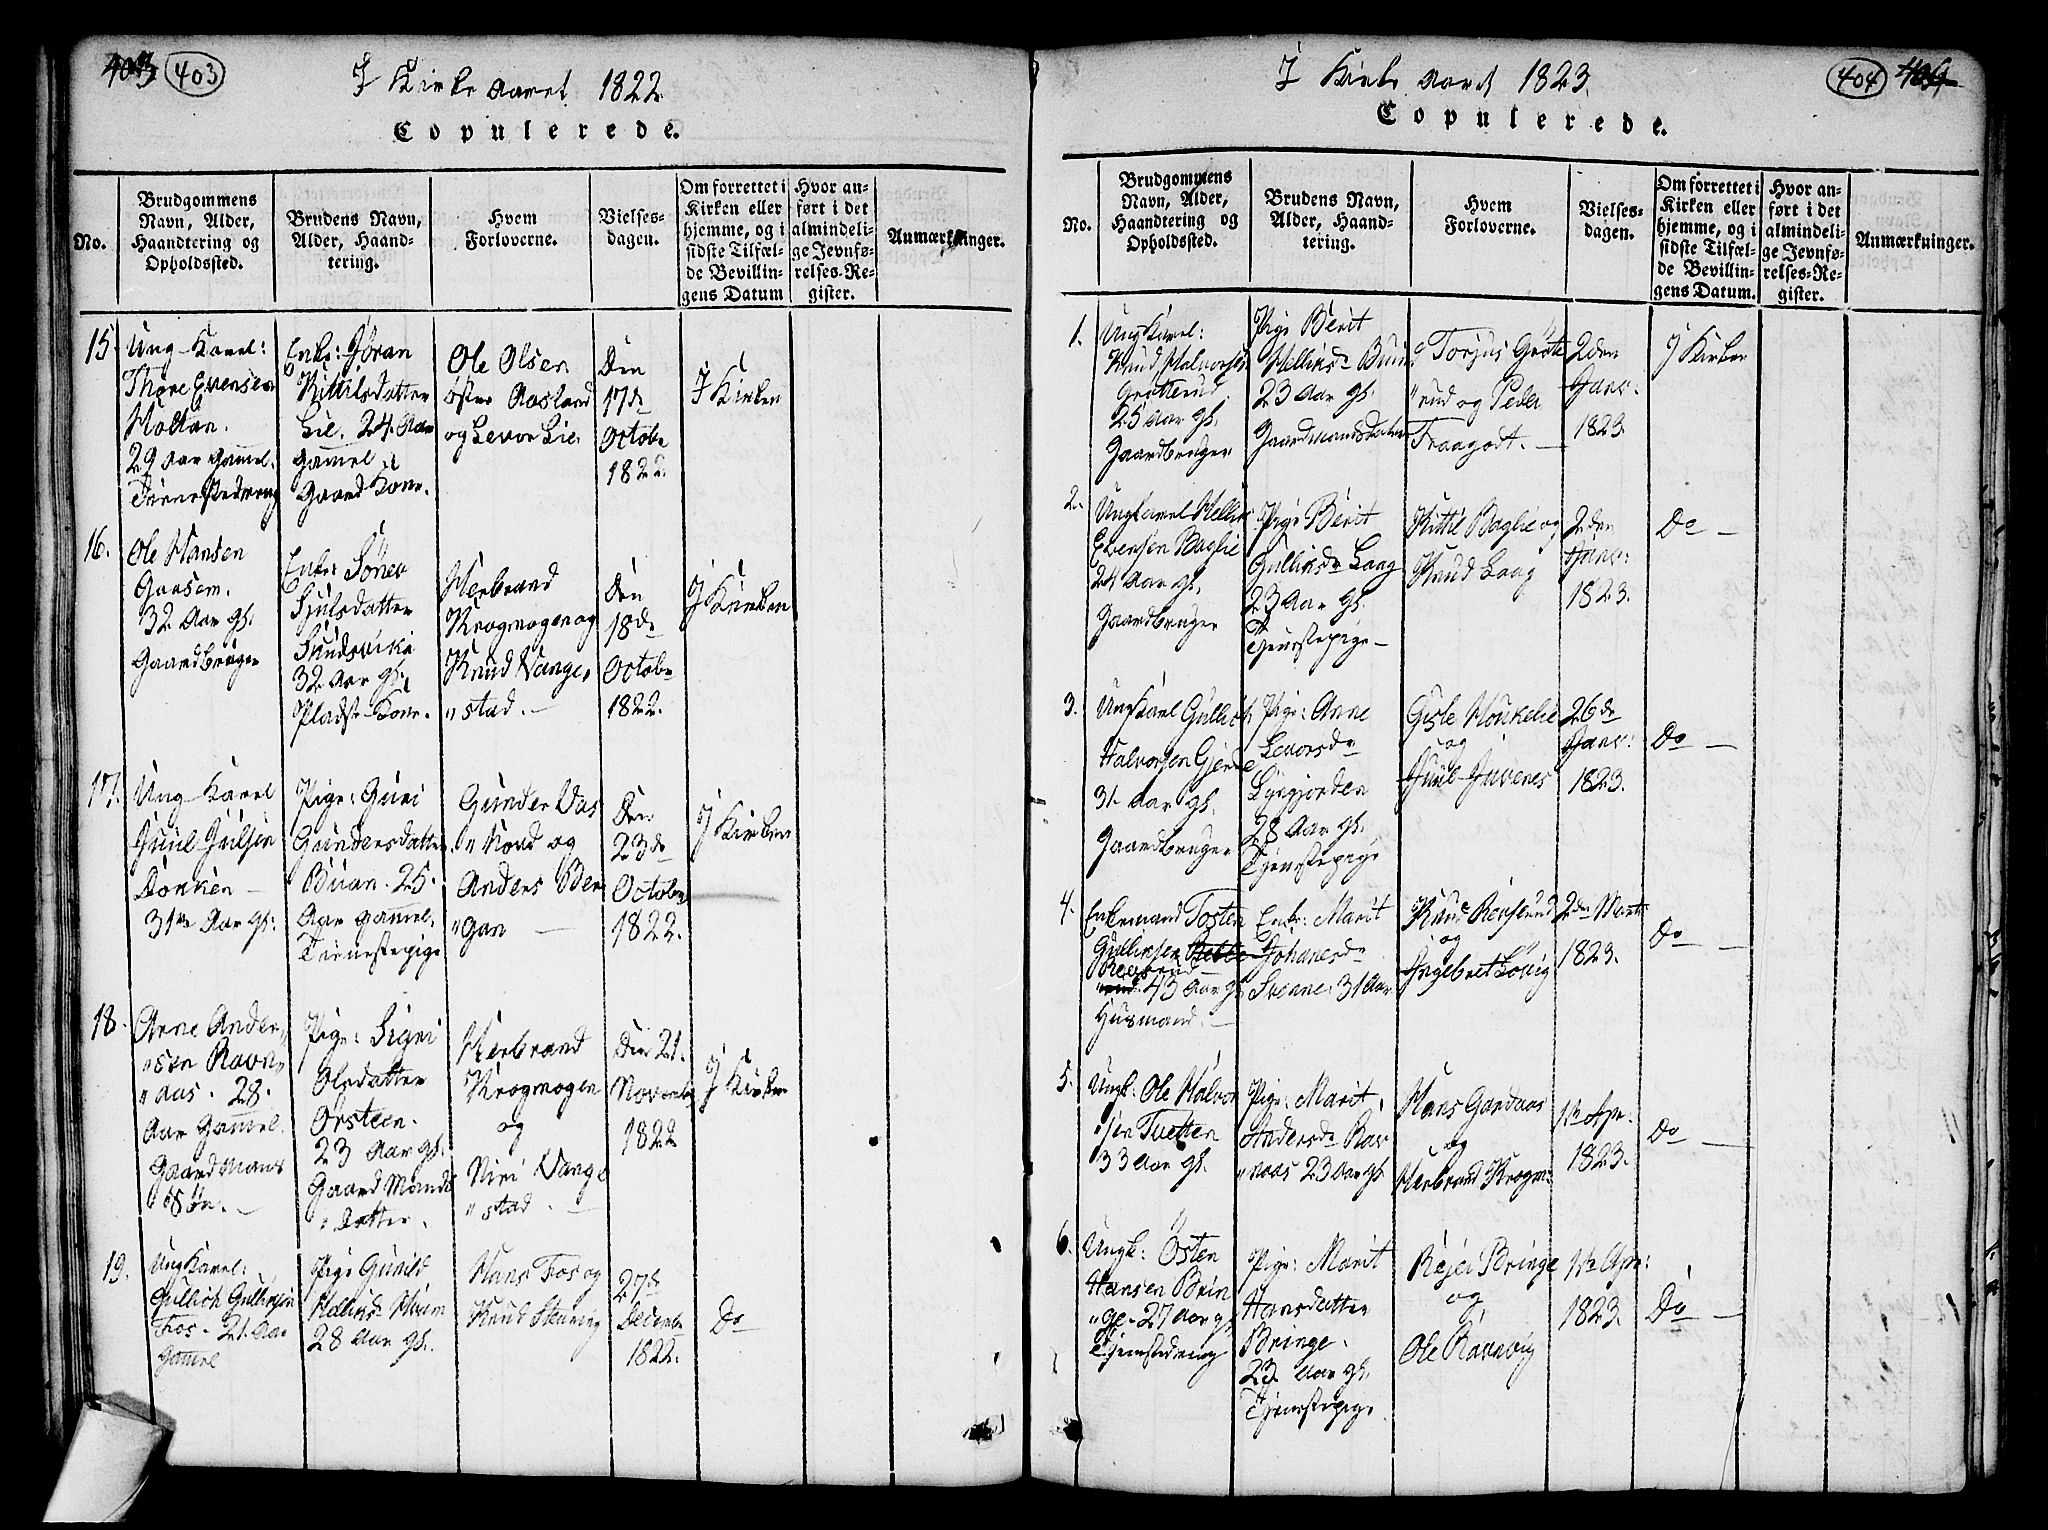 403
I Kirke Aaret 1822
Copulerede.
No.
Brudgommens
Navn, Alder,
Haandtering og
Opholdssted.
Brudens Navn,
Alder, Haand-
tering.
Hvem
Forloverne.
Vielses-
dagen.
Om forrettet i
Kirken eller
hjemme, og i
sidste Tilfæl-
de Bevillin-
gens Datum
Hvor an-
ført i det
almindeli-
ge Jevnfø-
relses-Re-
gister.
Anmærkninger.
15.
Ung-Karl:
Thore Evensen
Moltan.
29 Aar gamel.
Tienestedreng
Enke: Jöran
Kittilsdatter
Lie. 24 Aar
gamel
Gaard Kone.
Ole Olsen
östre Aasland
og Levor Lie.
Den
17de
Octobr
1822.
I Kirken
16.
Ole Hansen
32 Aar gl.
Gaardbruger
Enke: Sönev
Sjulsdatter
32 Aar gl.
Pladst-Kone.
Herbrand
Krogmogen og
Knud Vange,
"stad. -
Den
18de
Octobr
1822.
I Kirken
17.
Ung-Karl
Juul Julsen
Donken -
31te Aar gl:
Pige: Guri
Gundersdatter
Buan. 25.
Aar gammel.
Tienestepige
Gunder Aas
og
Anders Ber
"gan -
Den
23de
Octobr
1822.
I Kirken
18.
Arne Ander,
"sen Ravn,
"aas. 28.
Aar Gammel.
Gaardmans
Sön. -
Pige: Sigri
Olsdatter
Örsteen.
23 Aar gl.
Gaard Mands
"Datter.
Herbrand
Krogmogen
og
Niri Vange
"stad. -
Den 21.
Novembr
1822
I Kirken
19.
Ung Karl:
Gullich Gullichsen
Fos - 21 Aar
Gamel
Pige Gunild
28 Aar gl.
Hans Fos og
Knud
27de
Decembr
1822.
Do
I Kirke Aaret 1823.
404
Copulerede.
No.
Brudgommens
Navn, Alder,
Haandtering og
Opholdssted.
Brudens Navn,
Alder, Haand-
tering.
Hvem
Forloverne.
Vielses-
dagen.
Om forrettet i
Kirken eller
hjemme, og i
sidste Tilfæl-
de Bevillin-
gens Datum.
Hvor an-
ført i det
almindeli-
ge Jevnfø-
relses-Re-
gister.
Anmærkninger.
1.
Ung Karl:
Knud Halvorsen
Gröterud
25 Aar gl.
Gaardbruger
Pige Berit
23 Aar gl.
Gaardmandsdatter
Torjus Gröte
"rud og Peder
Fraagodt. -
2den
Janv:
1823.
I Kirken
2.
Ungkarl Hellik
Evensen Baglie
24 Aar gl.
Gaardbruger
Pige Berit
Gulliksdr Laag
23 Aar gl.
Tjenestepige -
Kittil Baglie og
Knud Laag
2den
Janv:
1823.
Do -
3.
Ungkarl Gullich
Halvorsen Gjerde
31 Aar gl.
Gaardbruger
Pige: Anne
Levorsdr
28 Aar gl.
Tjenestepige
Gisle Houkelie
og
Juul Juvenes
26de
Janv:
1823.
Do -
4.
Enkemand Tosten
Gullicksen
43 Aar gl
Husmand. -
Enke: Marit
Johanesdr
31 Aar
Knud
og
Ingebret Lövig
2den Marts
1823.
Do -
5.
Ungk: Ole Halvor
"sen Tvetten
33 Aar gl.
Pige: Marit,
Andersdr Rav
"naas 23 Aar gl.
Hans Gardaas
og
Herbrand Krogm:
1te Apr:
1823.
Do -
6.
Ungk: Östen
Hansen Brin
"ge - 27 Aar gl
Tjenestedreng
Pige: Marit
Hansdatter
Bringe.
23 Aar gl.
Tjenestepige
Rejer Bringe
og
Ole Ravnvig
1te Apr:
1823.
Do -